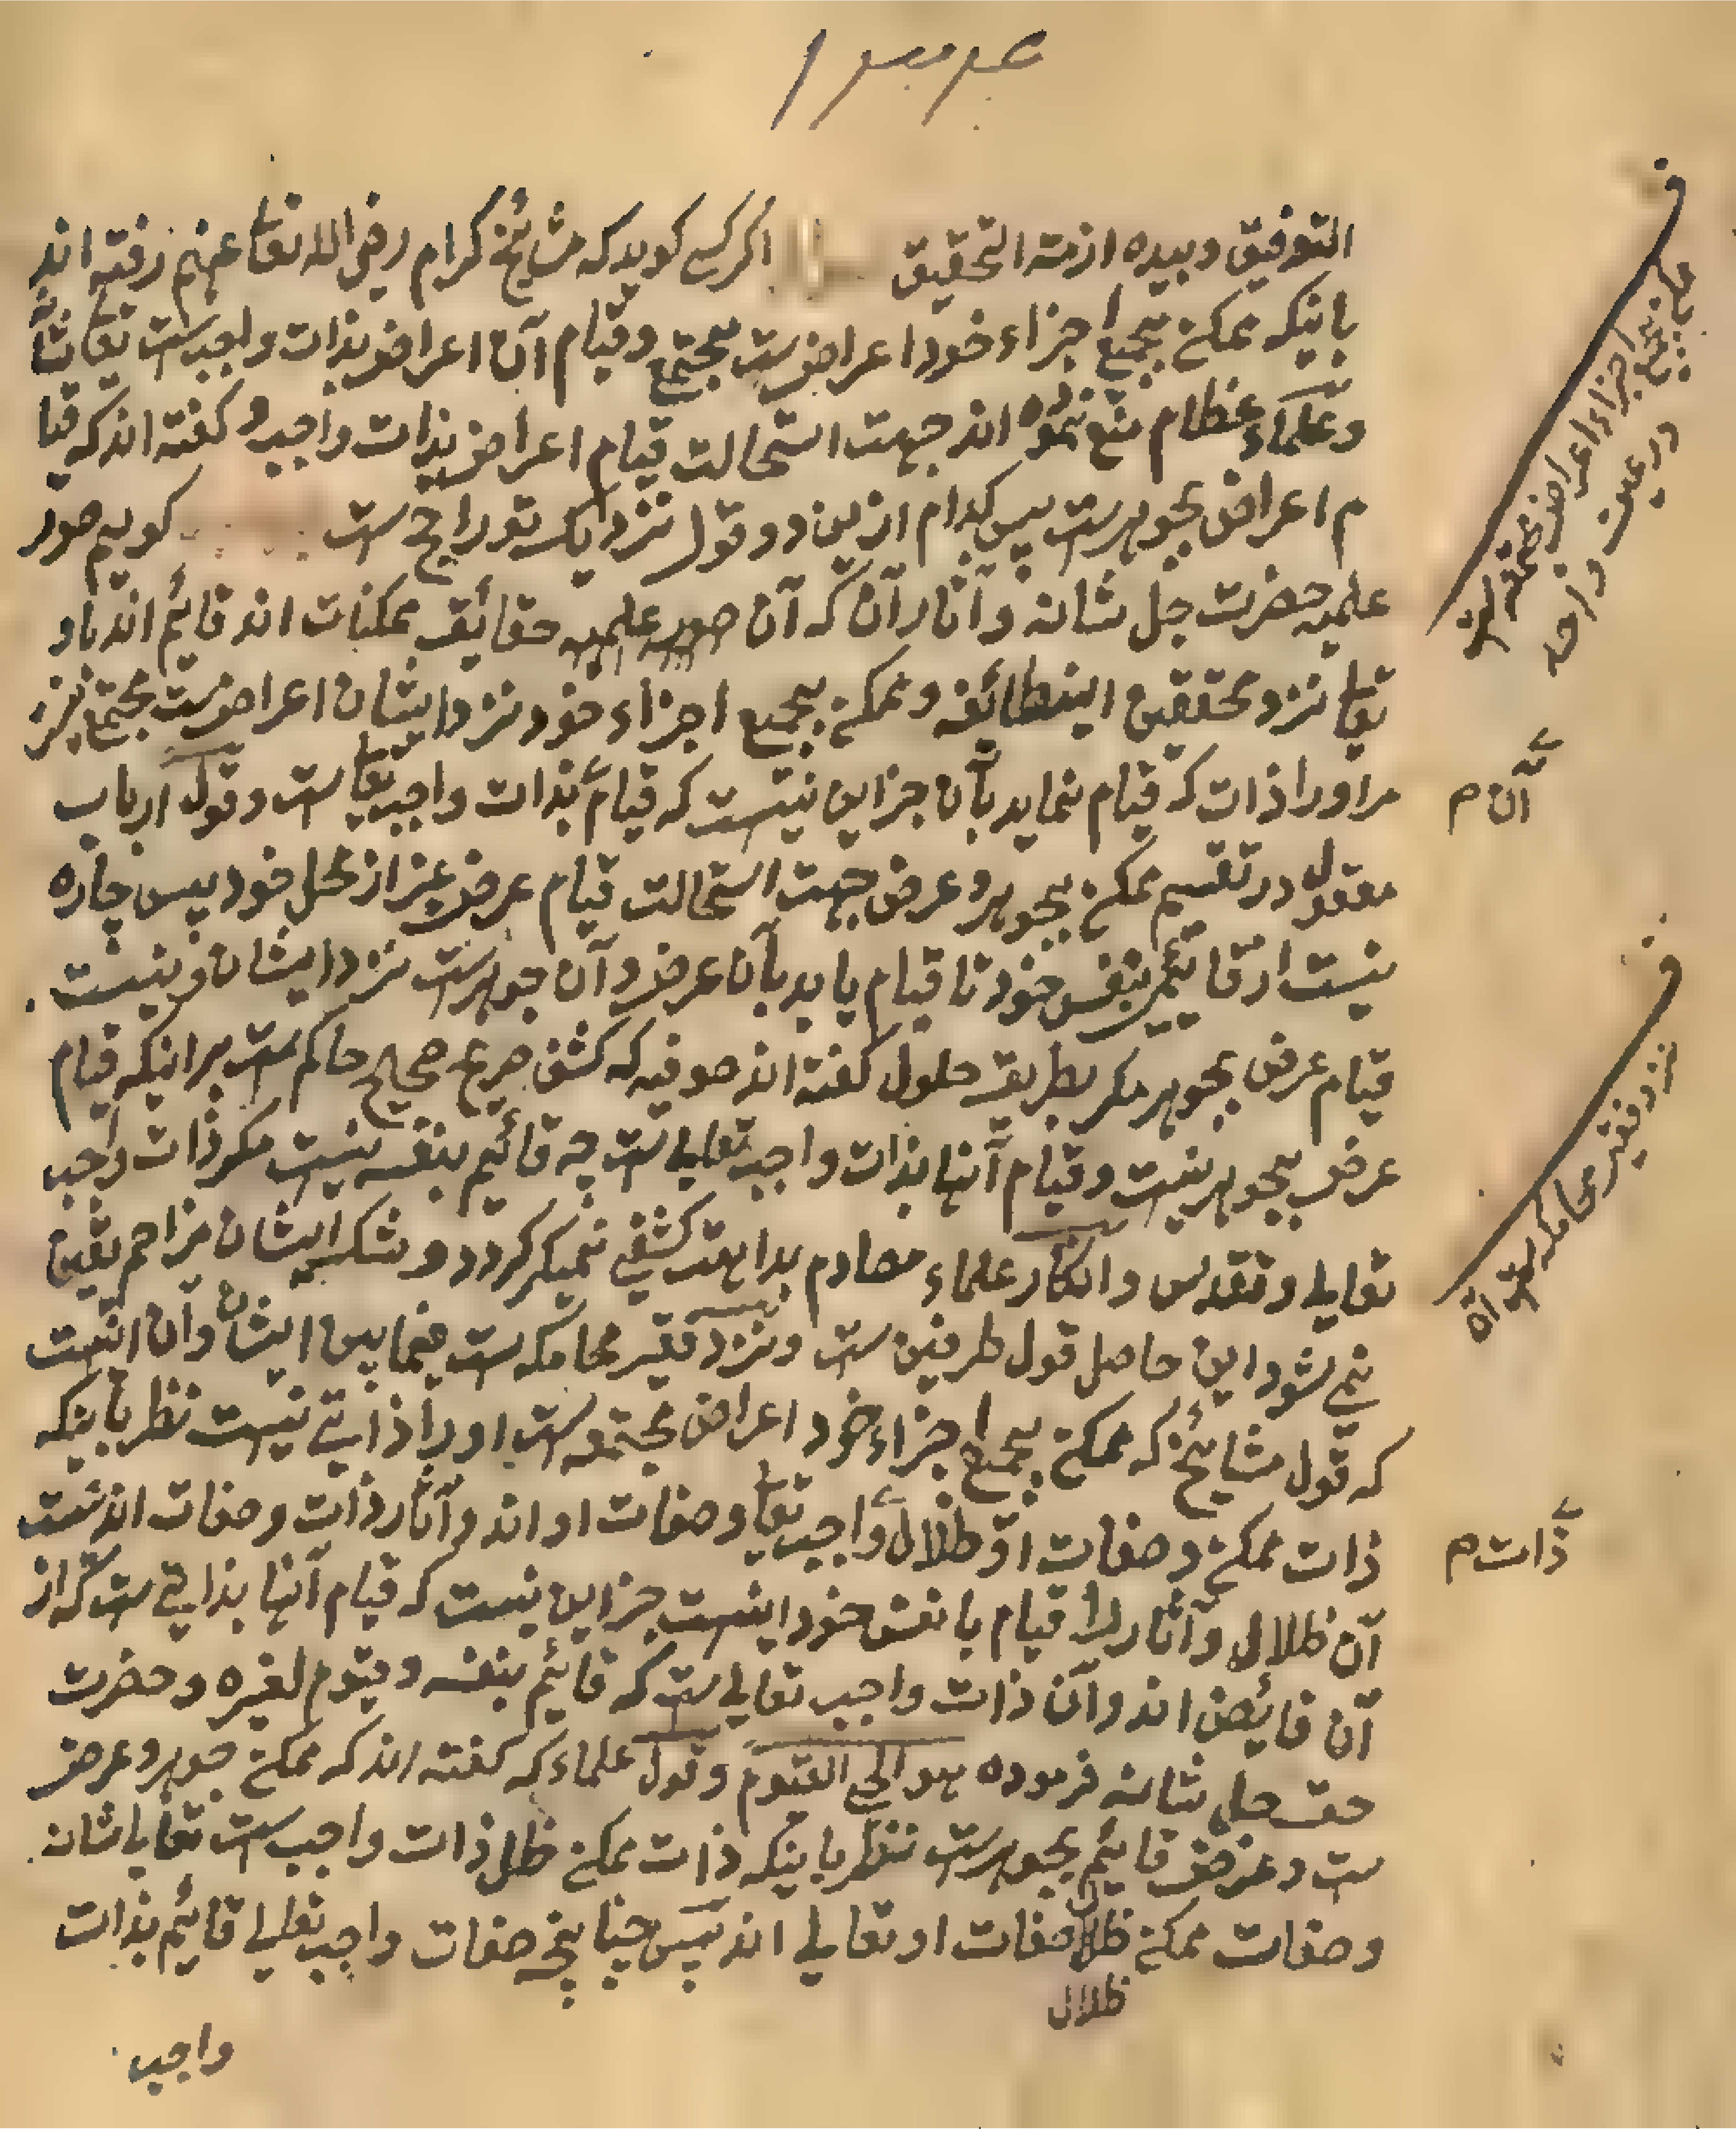 التوفیق و بیده ازمة التحقیق اکر کسی کوید که مشائخ کرام رضی الله تعا عنهم رفته اند
باینکه ممکن بجمیع اجزاء خود اعراضست مجتمع و قیام آن اعراض بذات واجبست تعا شانه
و علماء عظام منع نموده اند جهت استحالت قیام اعراض بذات واجب و کفته اند که قیا
م اعراض بجوهرست پس کدام ازین دو قول نزدیک تو راجح ست کویم صور
علمیه حضرت جل شانه و آثار آن که آن صور علمیه حقائق ممکنات اند قایٔم اند باو
تعا نزد محققین اینطائفه و ممکن بجمیع اجزاء خود نزد ایشان اعراضست مجتمع
مر او را ذات که قیام نماید بآن جز این نیست که قیام بذات واجب تعا ست و قول ارباب
معقول در تقسیم ممکن بجوهر و عرض جهت استحالت قیام عرض غیر از محل خود پس چاره
نیست از قایٔم بنفس خود تا قیام یابد بآن عرض و آن جوهرست نزد ایشان و نیست
قیام عرض بجوهر مکر بطریق حلول کفته اند صوفیه که کشف صریح صحیح حاکم ست برانیکه قیام
عرض بجوهر نیست و قیام آنها بذات واجب تعالی ست چه قایٔم بنفسه نیست مکر ذات واجب
تعالی و تقدس و انکار علماء مصادم بداهت کشفی نمیکردد و شک ایشان مزاحم یقین
نمی شود این حاصل قول طرفین ست و نزد فقیر محاکمه ست فیما بین ایشان و آن اینست
که قول مشایخ که ممکن بجمیع اجزاء خود اعراض مجتمعه ست او را ذاتی نیست نظر باینکه
ذات ممکن و صفات او ظلال واجب تعا و صفات او اند و آثار ذات و صفات اند نیست
آن ظلال و آثار را قیام با نفس خود اینست جز این نیست که قیام آنها بذاتی ست که از
آن فایٔض اند و آن ذات واجب تعالی ست که قایٔم بنفسه و مقوم لغیره و حضرت
حق جل شانه فرموده هو الحی القیوم و قول علماء که کفته اند که ممکن جوهر و عرض
ست و عرض قایٔم بجوهرست نظر باینکه ذات ممکن ظل ذات واجب ست تعا یا شانه
و صفات ممکن ظلال صفات او تعالی اند پس چنانچه صفات واجب تعالی قایٔم بذات
ظلال
واجب
ف
ممکن بجمیع اجزاء اعراض مجتمعه است
آن م
ف
نزد فقیر محاکمه است
ذات م